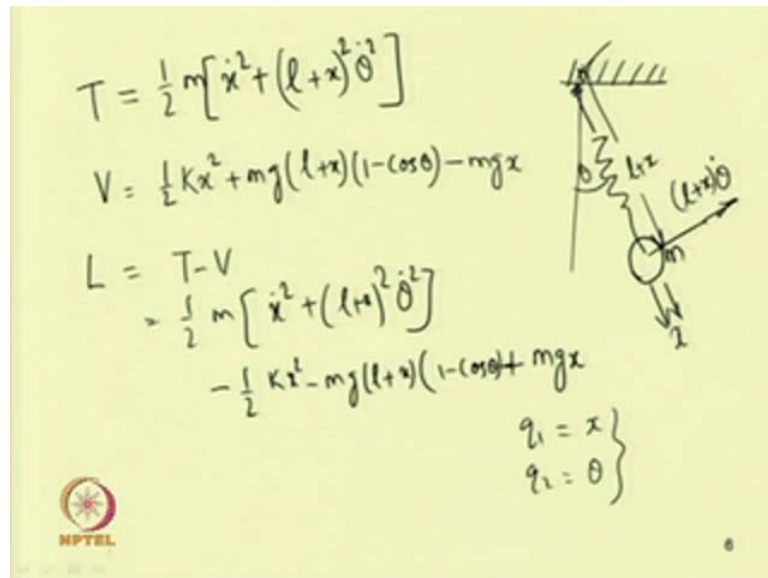 T = ½ m[ẋ² + (l+x)² θ̇²]
V = ½ Kx² + mg(l+x)(1-cosθ) - mgx
L = T-V
= ½ m[ẋ² + (l+x)² θ̇²]
- ½ Kx² - mg(l+x)(1-cosθ)+ mgx
q₁ = x
q₂ = θ
θ
l+x
(l+x)θ̇
m
x
NPTEL
6